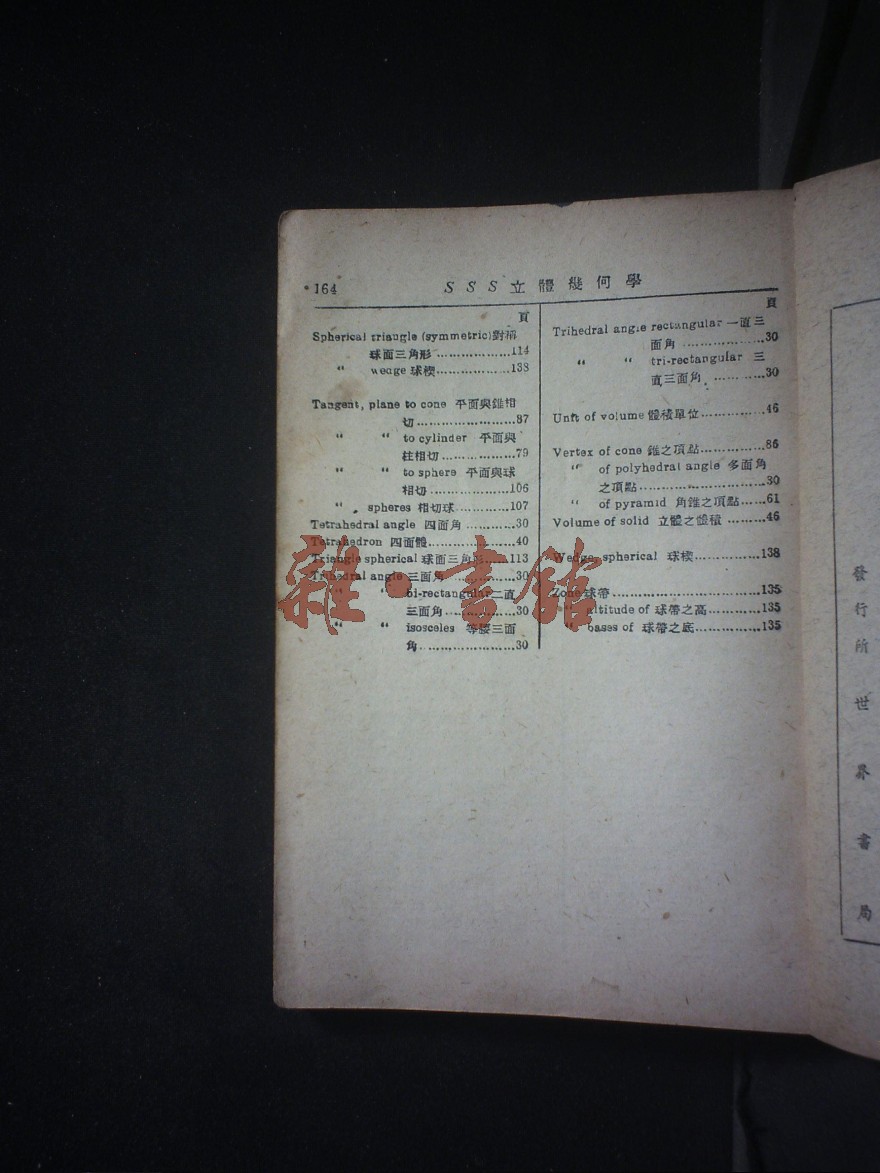 164
SSS立體幾何學
頁
Spherical triangle (symmetric)對稱
球面三角形 ..................114
“ wedge 球楔...................138
Tangent, plane to cone 平面與錐相
切........................87
“ “ to cylinder 平面與
柱相切..................79
“ “ to sphere 平面與球
相切....................106
“ spheres 相切球..............107
Tetrahedral angle 四面角 ............30
Tetrahedron 四面體.....................40
Triangle spherical 球面三角形......113
Trihedral angle 三面角 ...............30
“ “ bi-rectangular二直
三面角..................30
“ “ isosceles 等腰三面
角........................30
頁
Trihedral angle rectangular 一直三
面角 ....................30
“ “ tri-rectangular 三
直三面角 .............30
Unit of volume 體積單位...............46
Vertex of cone 錐之頂點...............86
“ of polyhedral angle 多面角
之頂點..............................30
“ of pyramid 角錐之頂點......61
Volume of solid 立體之體積 .........46
Wedge, spherical 球楔.................138
Zone 球帶....................................135
“ altitude of 球帶之高.............135
“ bases of 球帶之底................135
雜·書館
發行所世界書局